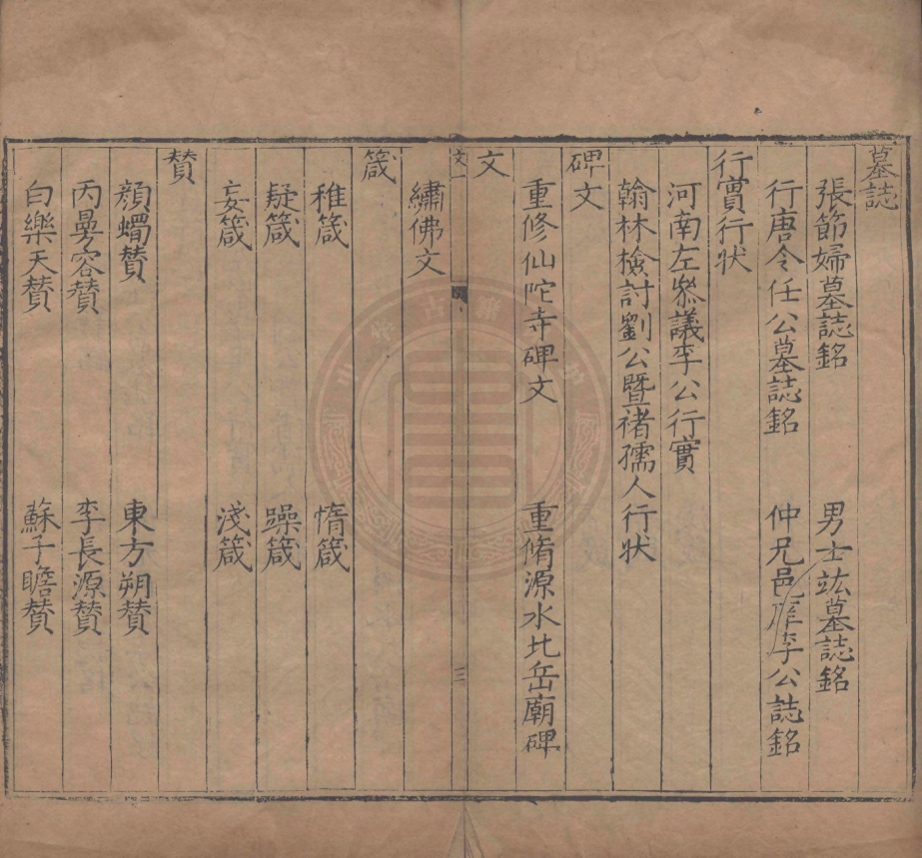 墓誌
張節婦墓誌銘　男士竑墓誌銘
行唐令任公墓誌銘　仲兄邑庠李公誌銘
行實行狀
河南左叅議李公行實
翰林檢討劉公暨褚孺人行狀
碑文
重修仙陀寺碑文　重脩源水北岳廟碑
文
繡佛文
文一　三
箴
稚箴　惰箴
疑箴　躁箴
妄箴　淺箴
賛
顔蠋賛　東方朔賛
丙曼容賛　李長源賛
白樂天賛　蘇子瞻賛